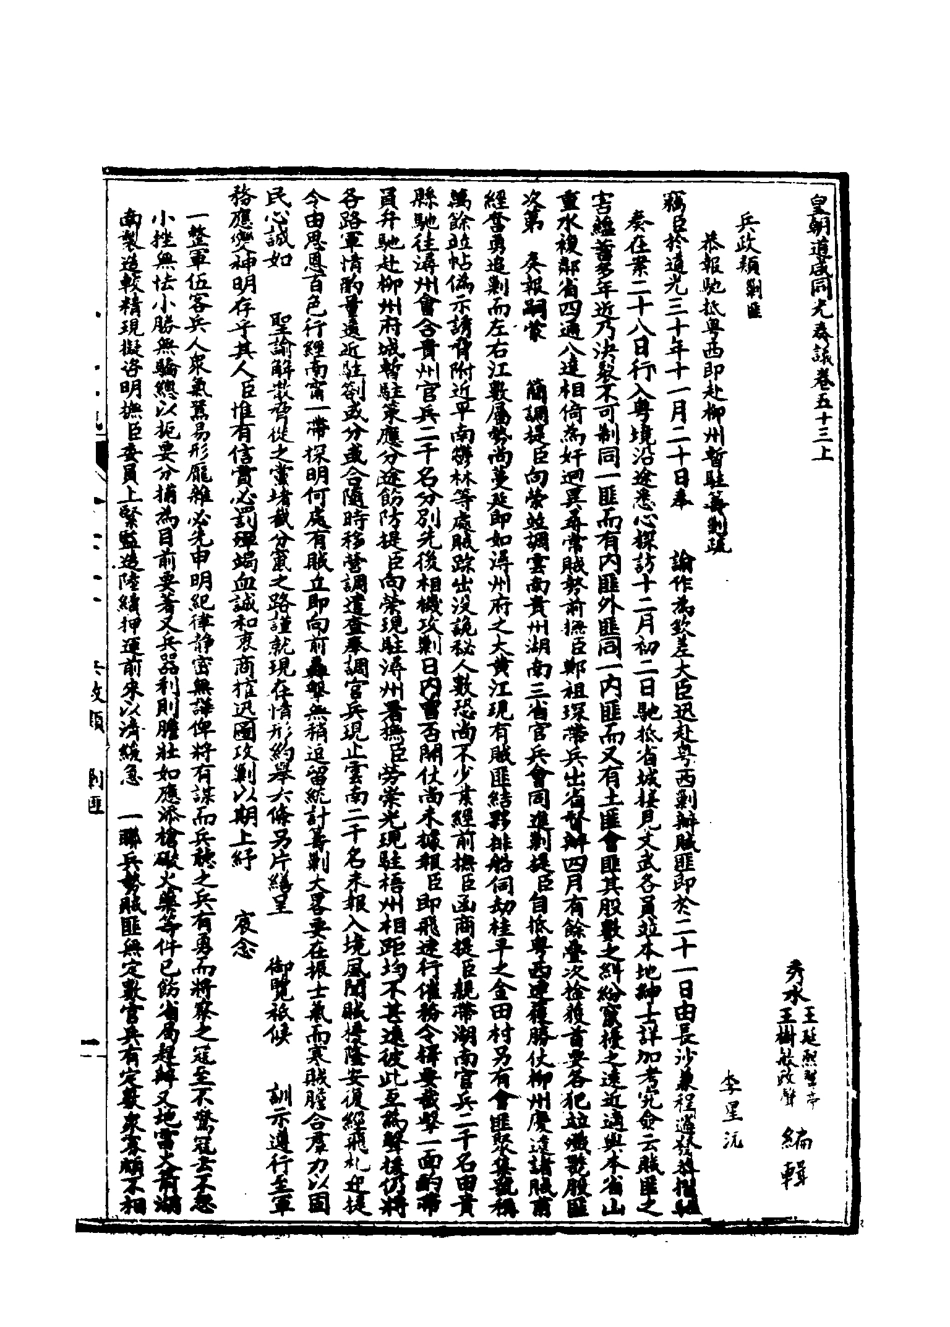 皇朝道咸同光奏議卷五十三上
秀水 王延熙聲亭 王樹敏政聲 編輯
兵政類剿匪
恭報馳抵粵西即赴柳州暫駐籌剿疏 李星沅
竊臣於道光三十年十一月二十日奉 諭作為欽差大臣迅赴粵西剿辦賊匪即於二十一日由長沙兼程遄發並揩
奏在案二十八日行入粵境沿途悉心探訪十二月初二日馳抵省城接見文武各員並本地紳士詳加考究僉云賊匪之
害蘊蓄多年近乃決裂不可制同一匪而有內匪外匪同一內匪而又有土匪會匪其股數之糾紛竄擾之遠近適與本省山
重水複鄰省四通八達相倚為奸迥異尋常賊勢前撫臣鄭祖琛帶兵出省督辦四月有餘疊次擒獲首要各犯並殲斃股匪
次第 奏報嗣蒙 簡調提臣向榮並調雲南貴州湖南三省官兵會同進剿提臣自抵粵西連獲勝仗柳州慶遠諸賊甫
經奮勇追剿而左右江數屬勢尚蔓延即如潯州府之大黃江現有賊匪結夥排船伺劫桂平之金田村另有會匪聚集號稱
萬餘並帖偽示誘脅附近平南鬱林等處賊踪出沒詭秘人數恐尚不少業經前撫臣函商提臣親帶湖南官兵二千名由貴
縣馳往潯州會合貴州官兵二千名分別先後相機攻剿日內曾否開仗尚未據報臣即飛速行催飭令擇要截擊一面酌帶
員弁馳赴柳州府城暫駐策應分途飭防提臣向榮現駐潯州署撫臣勞崇光現駐梧州相距均不甚遠彼此互為聲援仍將
各路軍情酌量遠近駐劄或分或合隨時移營調遣查奉調官兵現止雲南二千名未報入境風聞賊擾隆安復經飛札迎提
令由恩恩百色行經南甯一帶探明何處有賊立即向前轟擊無稍逗留統計籌剿大畧要在振士氣而寒賊膽合群力以固
民心誠如 聖諭解散脅從之黨堵截分竄之路謹就現在情形約舉六條另片繕呈 御覽祗候 訓示遵行至軍
務應變神明存乎其人臣惟有信賞必罰殫竭血誠和衷商榷迅圖攻剿以期上紓 宸念
一整軍伍客兵人眾氣驁易形龐雜必先申明紀律靜密無譁俾將有謀而兵聽之兵有勇而將察之寇至不驚寇去不怒
小挫無怯小勝無驕總以扼要分捕為目前要著又兵器利則膽壯如應添槍礮火藥等件已飭省局趕辦又地雷火箭湖
南製造較精現擬咨明撫臣委員上緊監造陸續押運前來以濟緩急 一聯兵勢賊匪無定數官兵有定數眾寡頗不相
兵政類 剿匪 一